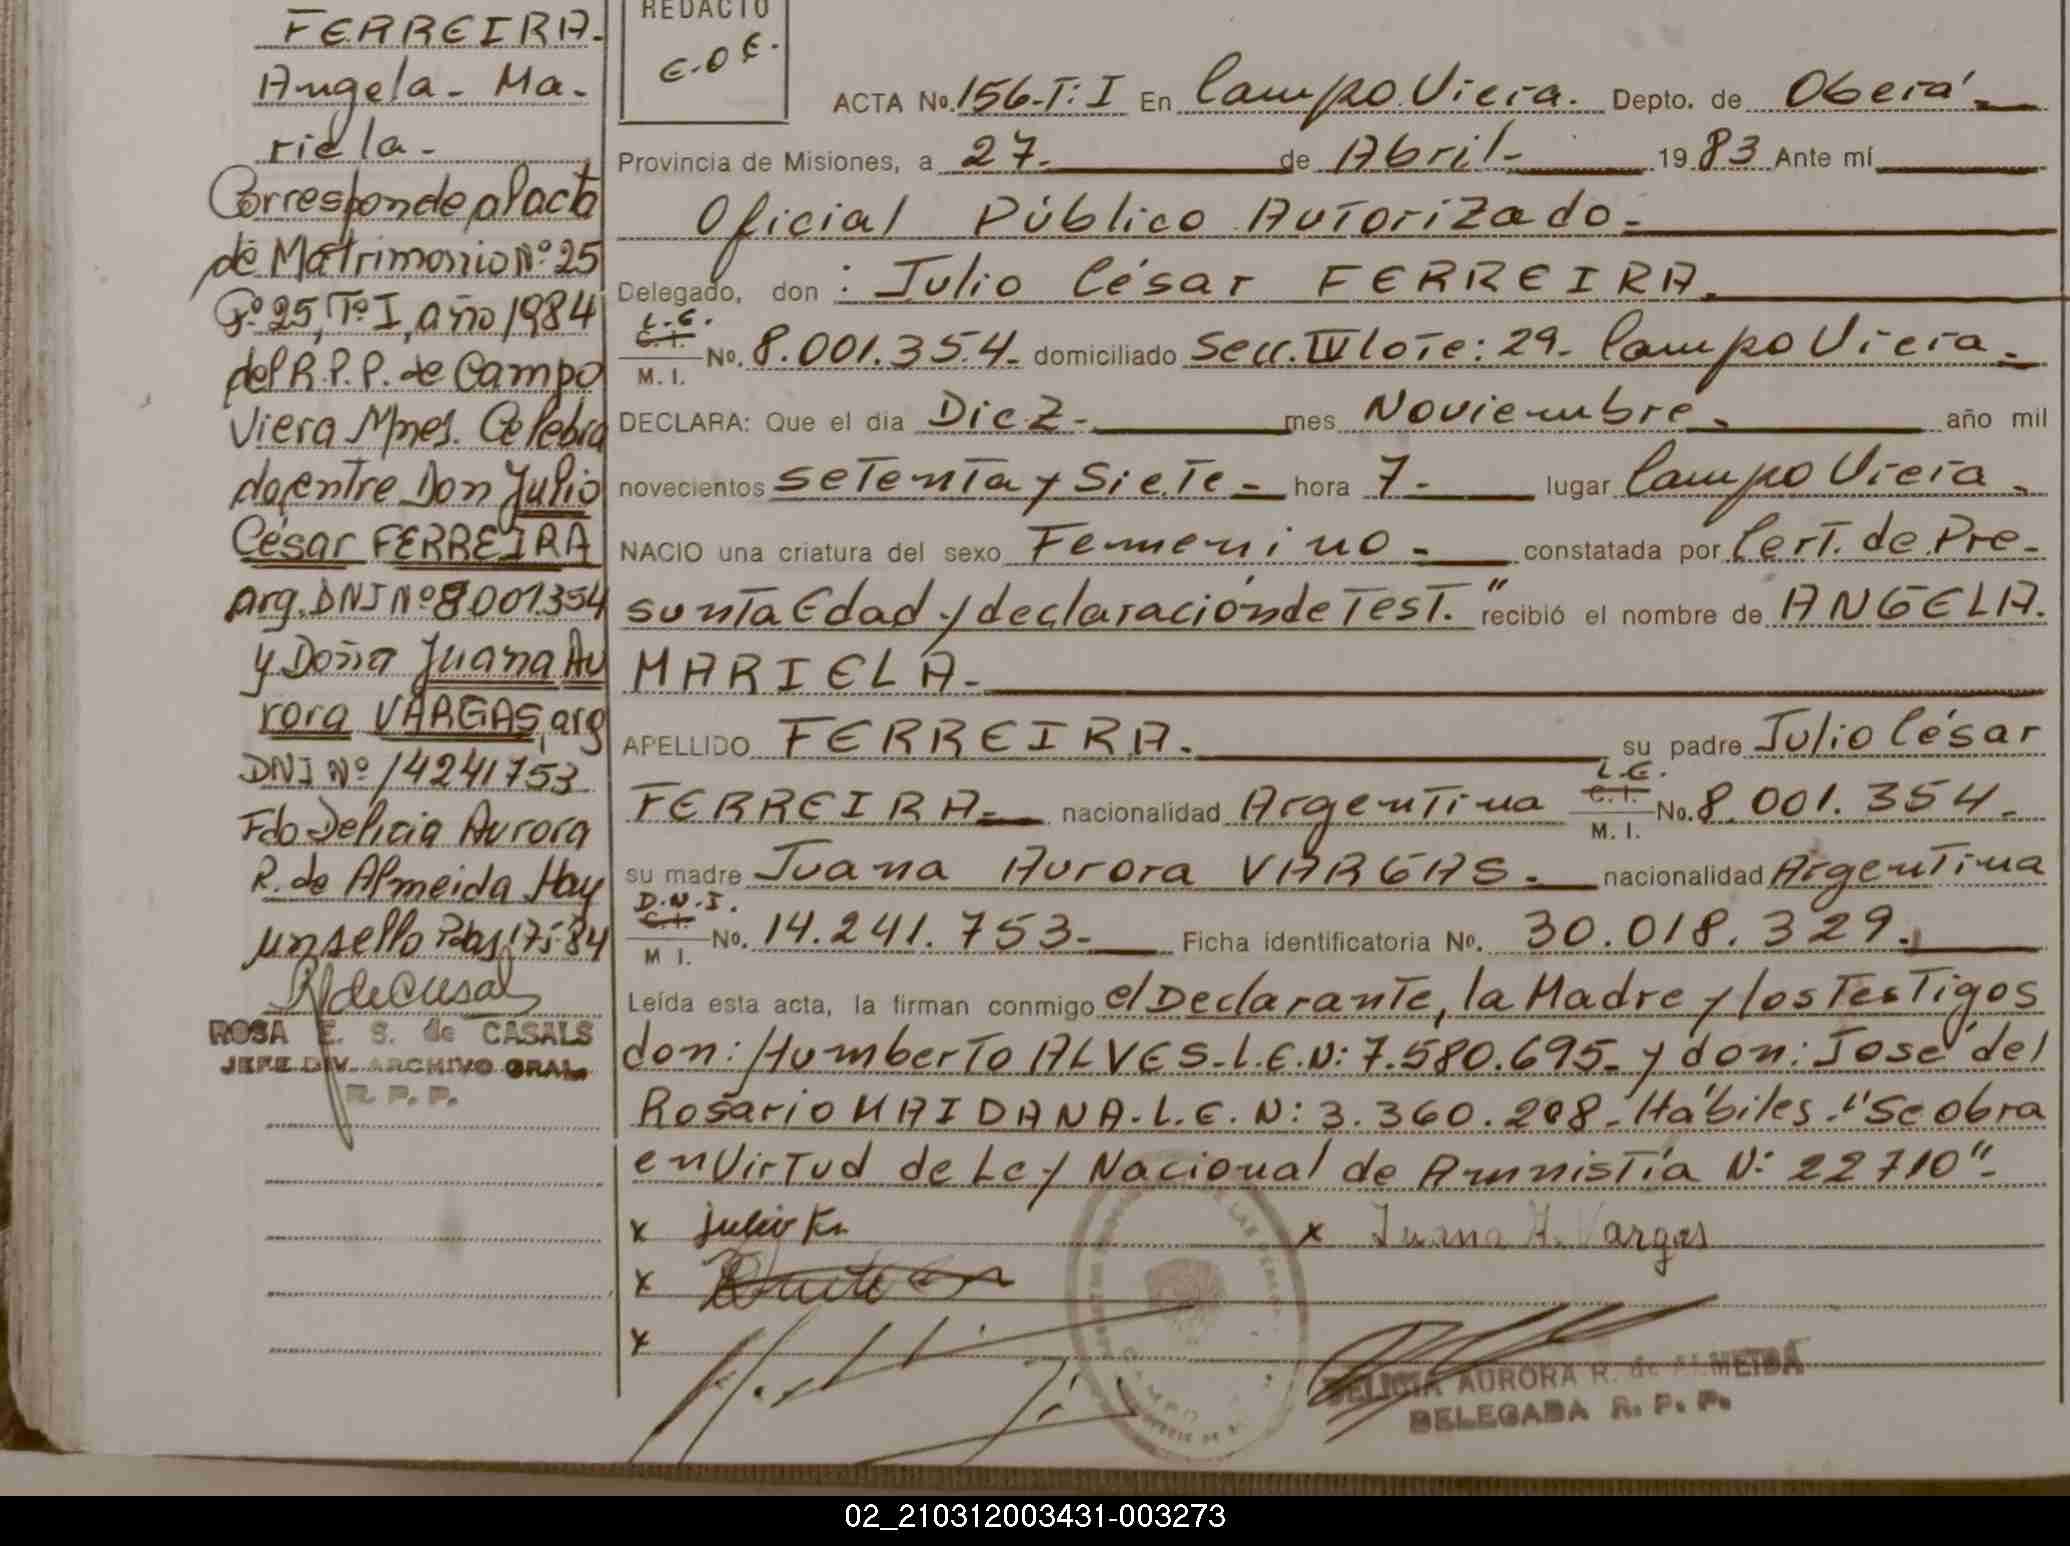 FERREIRA.
Angela - Ma-
riela -
Corresponde al acta
de Matrimonio Nº 25
Fº 25, Tº I, año 1984
del R.P.P. de Campo
Viera Mnes. Celebra
do entre Don Julio
César FERREIRA
arg. DNI Nº 8001354
y Doña Juana Au
rora VARGAS, arg
DNI Nº 14241753
Fdo Delicia Aurora
R. de Almeida Hay
un sello Pdas, 17-5-84
ROSA E. S. de CASALS
JEFE DIV. ARCHIVO GRAL.
R. P. P.
REDACTO
E.O.E.
ACTA No. 156-T: I En Campo Viera. Depto. de Oberá.
Provincia de Misiones, a 27. de Abril. 1983 Ante mí
Oficial Público Autorizado.
Delegado, don : Julio César FERREIRA.
L.E.
C.I.
M. I. No. 8.001.354. domiciliado Secc. IV lote: 29. Campo Viera.
DECLARA: Que el dia Diez. mes Noviembre. año mil
novecientos setenta y Siete. hora 7. lugar Campo Viera.
NACIO una criatura del sexo Femenino. constatada por Cert. de Pre-
sunta Edad y declaración de Test. " recibió el nombre de ANGELA.
MARIELA.
APELLIDO FERREIRA. su padre Julio César
FERREIRA. nacionalidad Argentina L.E. C.I. M. I. No. 8.001.354.
su madre Juana Aurora VARGAS. nacionalidad Argentina
D.N.I.
C.I.
M I. No. 14.241.753. Ficha identificatoria No. 30.018.329.
Leída esta acta, la firman conmigo el Declarante, la Madre y los Testigos
don: Humberto ALVES. L.E.N: 7.580.695. y don: José del
Rosario MAIDANA. L.E.N: 3.360.208. Hábiles. "Se obra
en Virtud de Ley Nacional de Amnistía N: 22710".
x Julio x Juana A. Vargas
x
x
DELICIA AURORA R. de ALMEIDA
DELEGADA R. P. P.
02_210312003431-003273